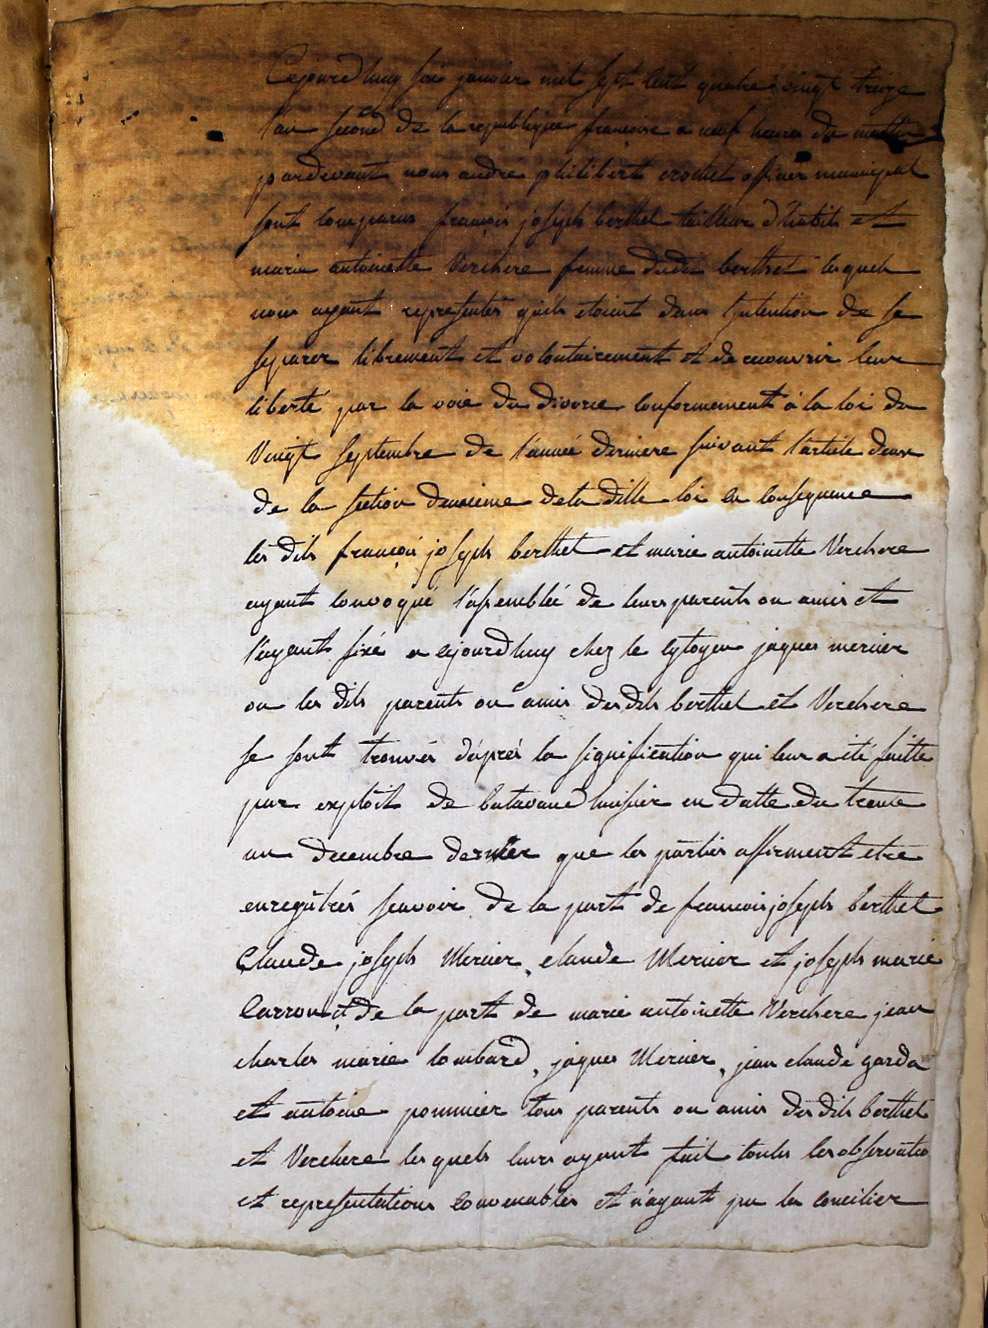 Cejourdhuy six janvier mil sept cent quatre vingt treize
l'an second de la republique françoise a neuf heures du mattin
pardevant nous andré philibert crochet officier municipal
sont comparus françois joseph berthet tailleur d'habits et
marie antoinette Verchere femme dudit berthet lesquels
nous ayant representés qu'ils etoient dans l'intention de se
separer librement et volontairement et de recouvrir leur
liberté par la voie du divorce conformement à la loi du
Vingt septembre de l'année derniere suivant l'article deux
de la section deuxieme de la ditte loi en consequence
les dits françois joseph berthet et marie antoinette Verchere
ayant convoqué l'assemblée de leurs parents ou amis et
l'ayant fixé a cejourdhuy chez le cytoyen jaques mercier
ou les dits parents ou amis desdits berthet et Verchere
se sont trouvés d'après la signification qui leur a été faitte
par exploit de huissier en datte du trente
un decembre dernier que les parties affirment etre
enregistrés scavoir de la part de francois joseph berthet
Claude joseph Mercier, claude Mercier et joseph marie
Carron et de la part de marie antoinette Verchere jean
charles marie lombard, jaques Mercier, jean claude garda
et antoine pommier tous parents ou amis desdits berthet
et Verchere lesquels leurs ayant fait toutes les observatio
et representations convenables et n'ayant pu les concilier